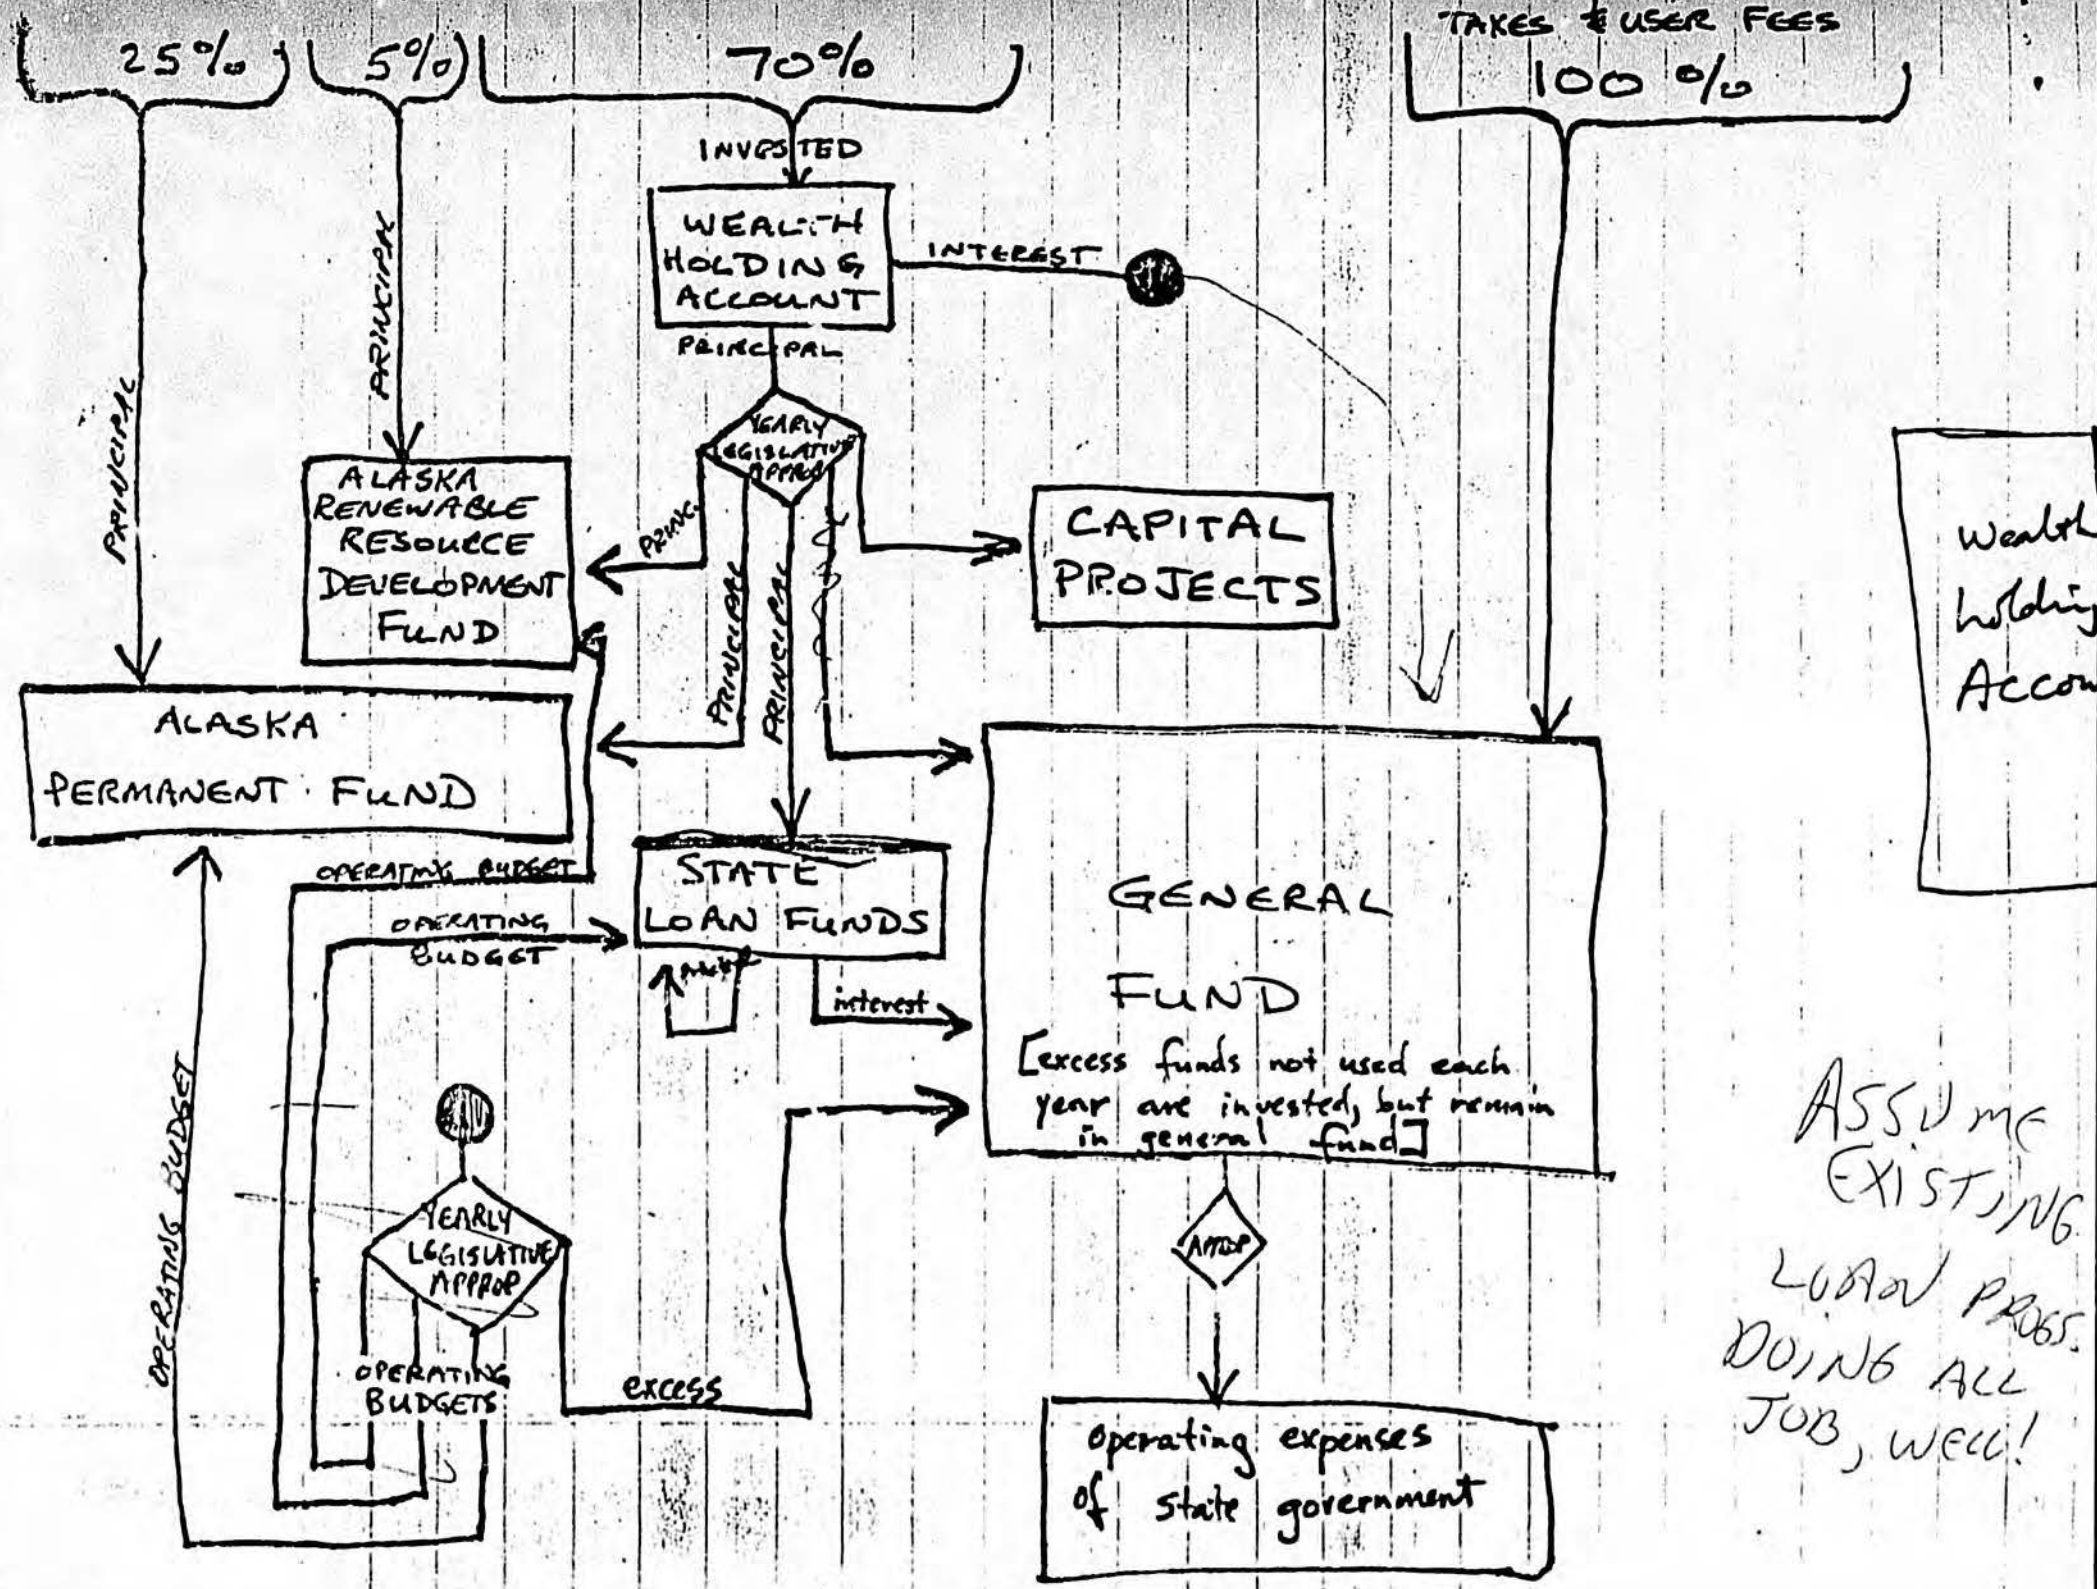 TAXES & USER FEES
25%
5%
70%
100 %
INVESTED
WEALTH
HOLDING
ACCOUNT
INTEREST
PRINCIPAL
PRINCIPAL
PRINCIPAL
YEARLY
LEGISLATIVE
APPROP
ALASKA
RENEWABLE
RESOURCE
DEVELOPMENT
FUND
PRINC.
PRINCIPAL
PRINCIPAL
CAPITAL
PROJECTS
Wealth
holding
Accou
ALASKA
PERMANENT FUND
OPERATING BUDGET
STATE
LOAN FUNDS
OPERATING
BUDGET
interest
GENERAL
FUND
[excess funds not used each
year are invested, but remain
in general fund]
OPERATING BUDGET
YEARLY
LEGISLATIVE
APPROP
OPERATING
BUDGETS
excess
APPROP
operating expenses
of state government
ASSUME
EXISTING
LOAN PROGS.
DOING ALL
JOB, WELL!